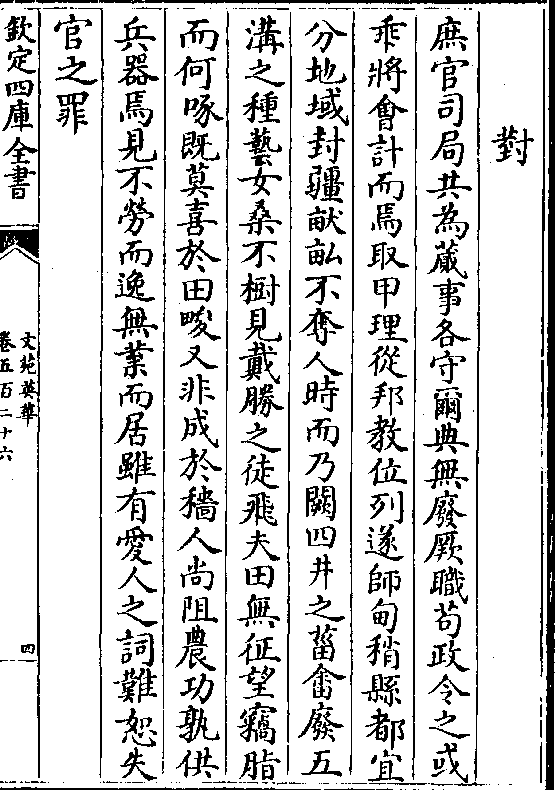 對
庶官司局共為蕆事各守爾典無廢厥職茍政令之或
乖將會計而焉取甲理從邦教位列遂師甸稍縣都宜
分地域封疆献畝不奪人時而乃闕四井之菑畬廢五
溝之種藝女桑不樹見戴勝之徒飛夫田無征望竊脂
而何啄既莫喜於田畯又非成於穡人尚阻農功孰供
兵器焉見不勞而逸無業而居雖有愛人之詞難恕失
官之罪
欽定四庫全書
文苑英華
卷五百二十六
四